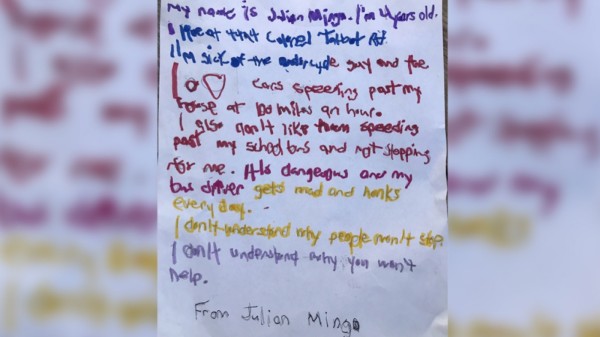 my name is Julian Mingo. I'm years old.
I live at Colonel Talbot Rd.
I'm sick of the motorcycle guy and the
cars speeding past my
house at 100 miles an hour.
I also don't like them speeding
past my school bus and not stopping
for me. It is dangerous and my
bus driver gets mad and honks
every day.
I don't understand why people won't stop.
I don't understand why you won't
help.
From Julian Mingo